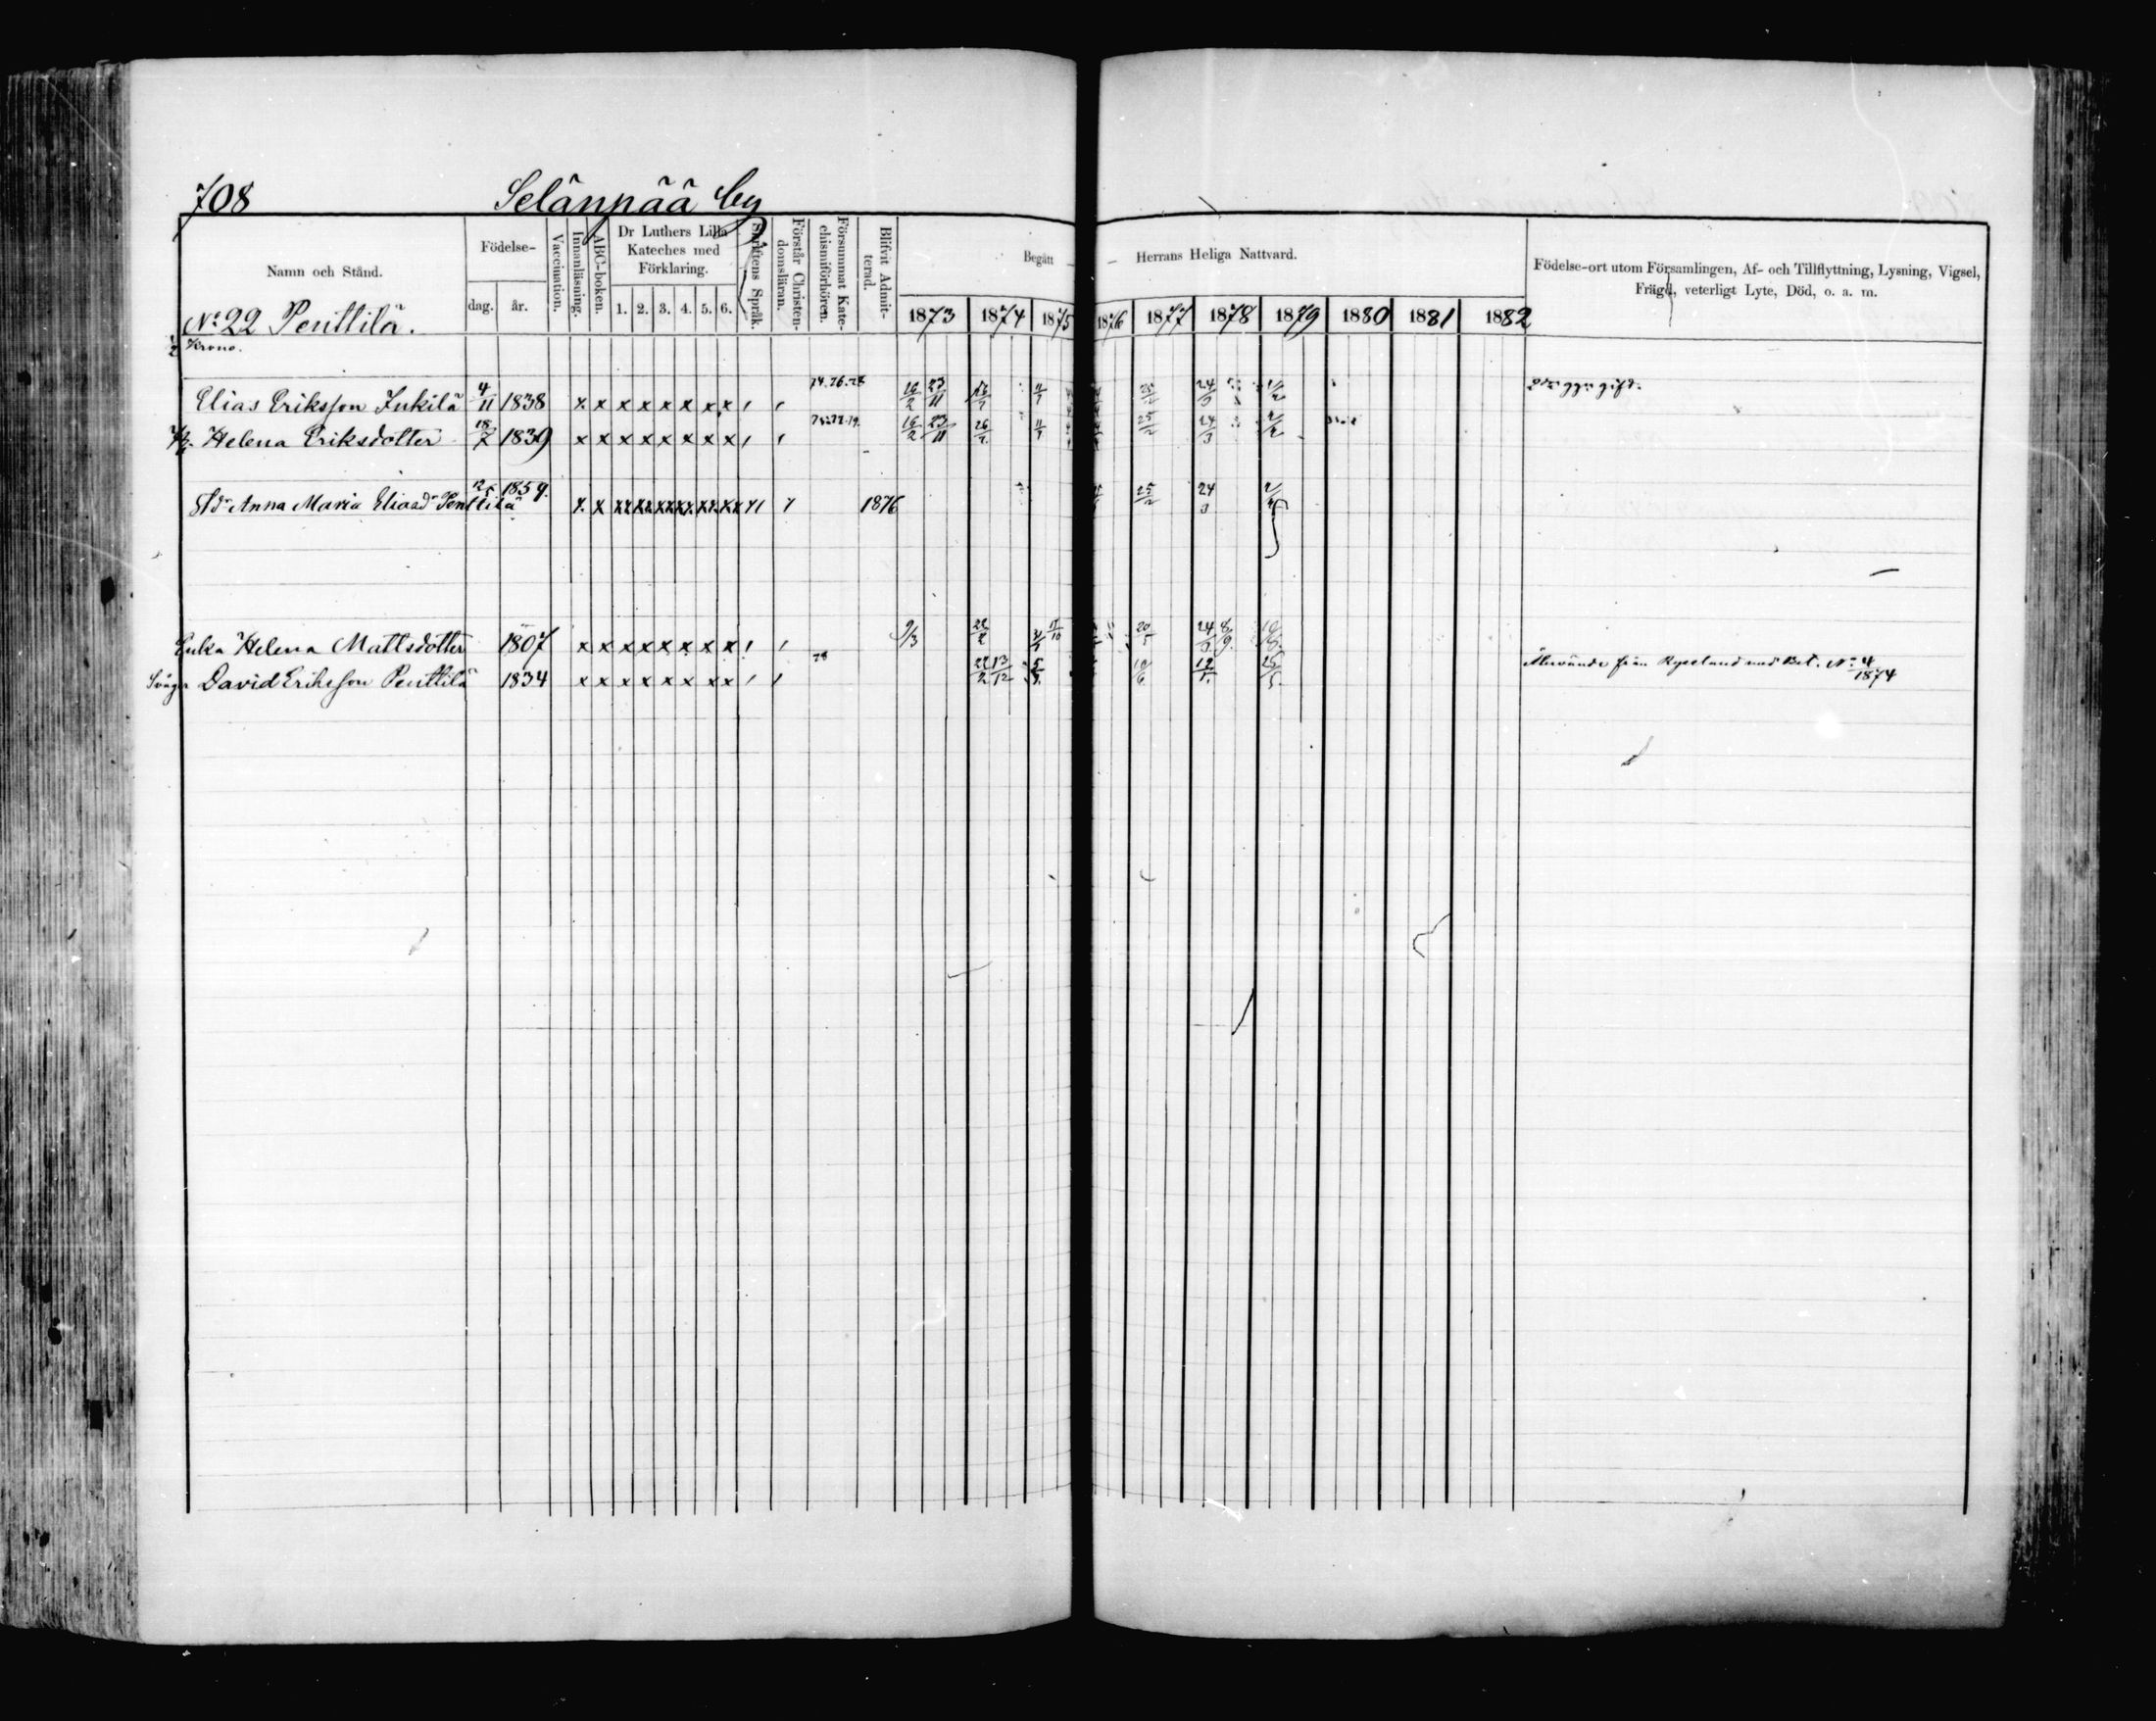 708 Selänpää by
Namn och Stånd.
Födelse-
dag. år.
Vaccination.
Innanläsning.
ABC-boken.
Dr Luthers Lilla
Kateches med
Förklaring.
1. 2. 3. 4. 5. 6.
Skriftens Språk.
Förstår Christen-
domsläran.
Försummat Kate-
chismiförhören.
Blifvit Admit-
terad.
Begått Herrans Heliga Nattvard.
1873 1874 1875 1876 1877 1878 1879 1880 1881 1882
Födelse-ort utom Församlingen, Af- och Tillflyttning, Lysning, Vigsel,
Frägd, veterligt Lyte, Död, o. a. m.
No 22 Penttilä.
Krono.
Elias Eriksson Inkilä 4/11 1838 x x x x x x x x 16/2 23/11 24/3 2 ggr gift.
Helena Eriksdotter 18/7 1839 x x x x x x x x 16/2 23/11 26/7 25/2 24/3
Anna Maria Eliasdr Penttilä 1859. 1876 25/2 24/3
Enka Helena Mattsdotter 1807 x x x x x x x x 9/3 22/2 20/5 24/3 8/9
Svåger David Eriksson Penttilä 1834 x x x x x x x x 78 22/2 13/12 10/6 25/5 från Ryssland med Bet. No 4/1874